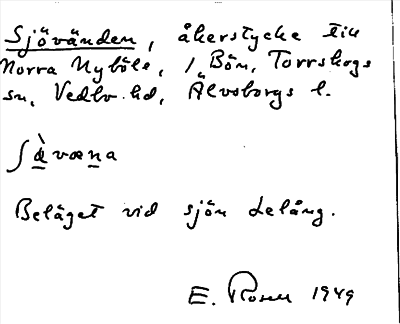 Sjövänden, åkerstycke till
Norra Nyböle, 1 Bön, Torrskogs
sn, Vedbo hd, Älvsborgs l.
ʃὰvæna
Beläget vid sjön Lelång.
E. Rosell 1949